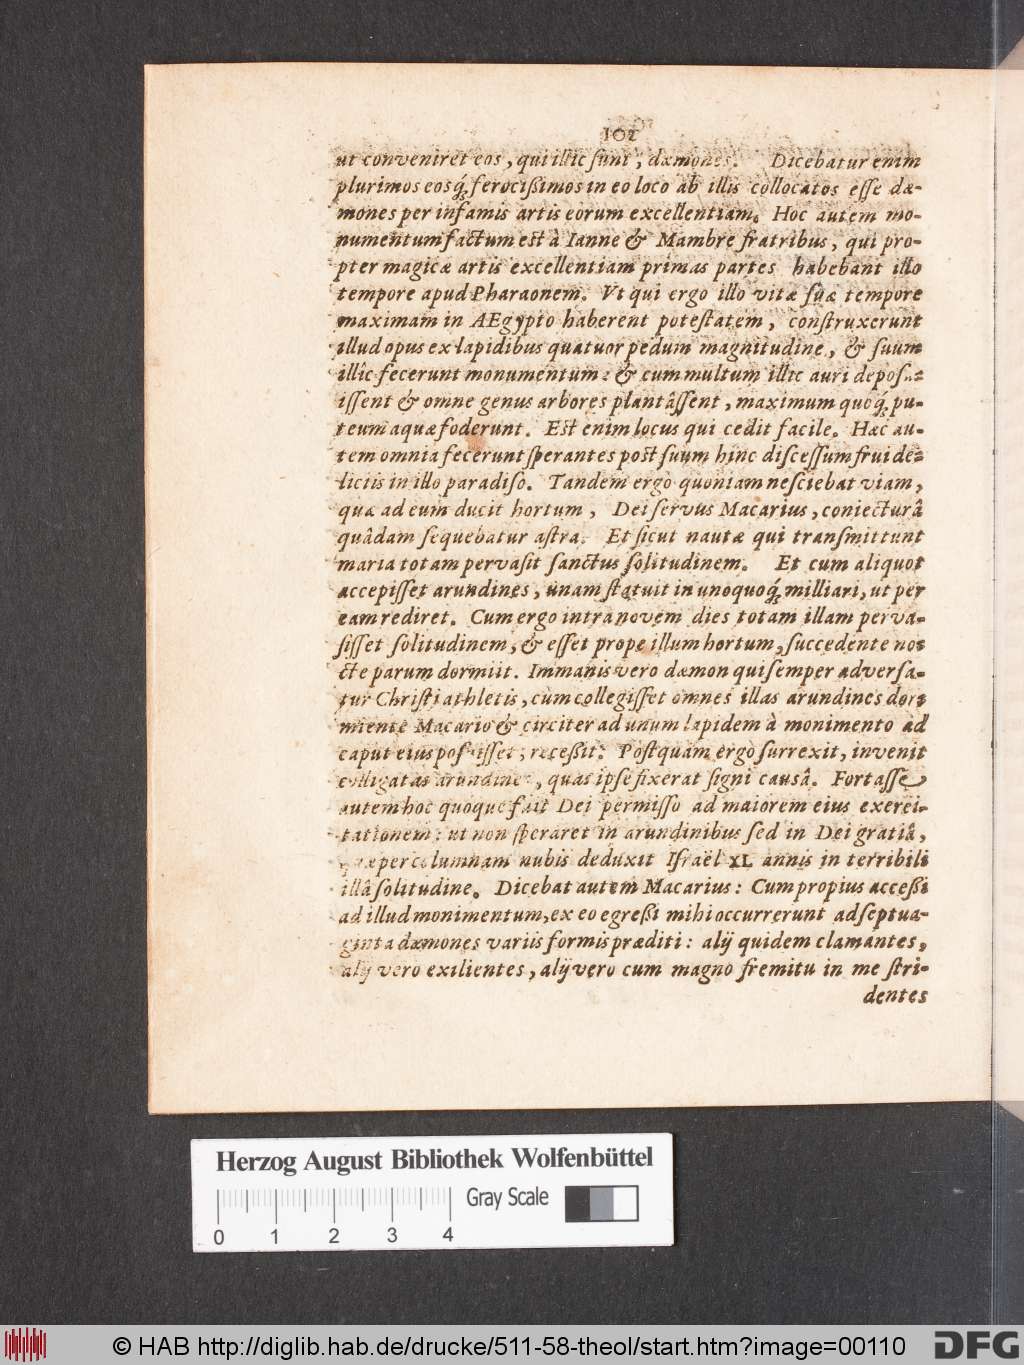 102
ut conveniret eos, qui illic sunt, dæmones. Dicebatur enim
plurimos eosq́; ferocißimos in eo loco ab illis collocatos esse dæ-
mones per infamis artis eorum excellentiam. Hoc autem mo-
numentum factum est à Ianne & Mambre fratribus, qui pro-
pter magicæ artis excellentiam primas partes habebant illo
tempore apud Pharaonem. Vt qui ergo illo vitæ suæ tempore
maximam in AEgypto haberent potestatem, construxerunt
illud opus ex lapidibus quatuor pedum magnitudine, & suum
illic fecerunt monumentum: & cum multum illic auri depos
issent & omne genus arbores plantâssent, maximum quoq́; pu-
teum aquæ foderunt. Est enim locus qui cedit facile. Hæc au-
tem omnia fecerunt sperantes post suum hinc discessum frui de-
liciis in illo paradiso. Tandem ergò quoniam nesciebat viam,
quæ ad eum ducit hortum, Dei servus Macarius, coniecturâ
quâdam sequebatur astra. Et sicut nautæ qui transmittunt
maria totam pervasit sanctus solitudinem. Et cum aliquot
accepisset arundines, unam statuit in unoquoq́; milliari, ut per
eam rediret. Cum ergo intra novem dies totam illam perva-
sisset solitudinem, & esset prope illum hortum, succedente no-
cte parum dormiit. Immanis vero dæmon qui semper adversa-
tur Christi athletis, cùm collegisset omnes illas arundines dor-
miente Macario & circiter ad unum lapidem à monimento ad
caput eius posuisset, receßit. Postquam ergò surrexit, invenit
colligatas arundines, quas ipse fixerat signi causâ. Fortasse
autem hoc quoque fuit Dei permisso ad maiorem eius exerci-
tationem: ut non speraret in arundinibus sed in Dei gratiâ,
quæ per columnam nubis deduxit Israël XL annis in terribili
illâ solitudine. Dicebat autem Macarius: Cum propius acceßi
ad illud monimentum, ex eo egreßi mihi occurrerunt ad septua-
ginta dæmones variis formis præditi: alij quidem clamantes,
alij vero exilientes, alij vero cum magno fremitu in me stri-
dentes
Herzog August Bibliothek Wolfenbüttel
Gray Scale
0 1 2 3 4
© HAB http://diglib.hab.de/drucke/511-58-theol/start.htm?image=00110
DFG